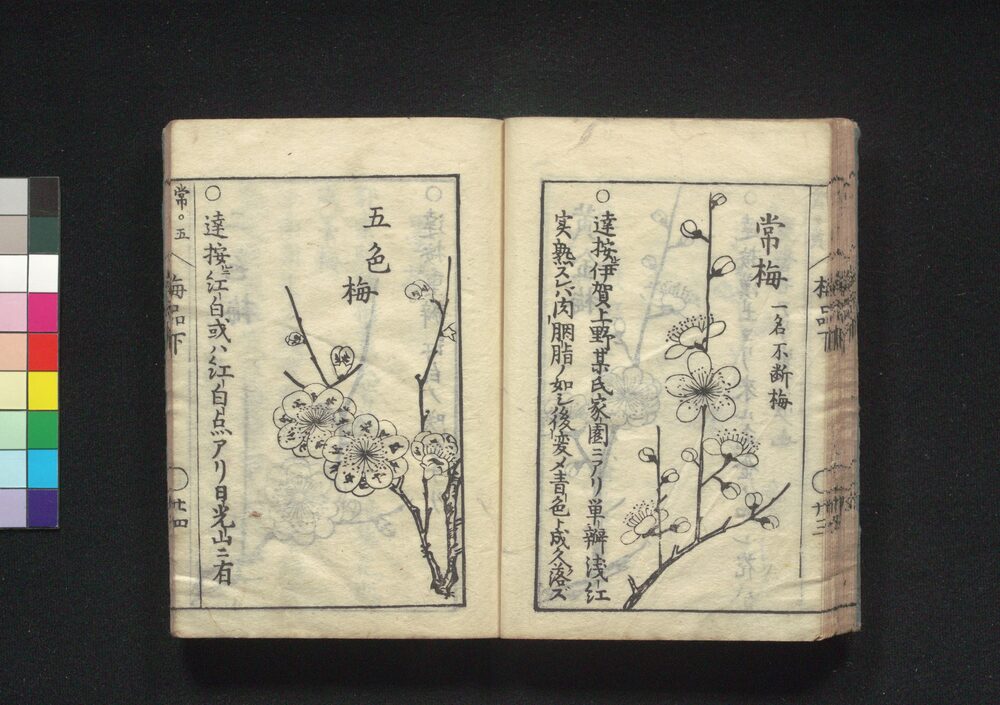 常梅
一名不断梅
○達按ニ伊賀上野某氏家園ニアリ単瓣浅紅
実熟スレバ肉臙脂ノ如シ後変メ青色ト成久落ズ
梅品下
廿三
五色
梅
○達按ニ紅白或ハ紅白点アリ日光山ニ有
常。五
梅品下
廿四